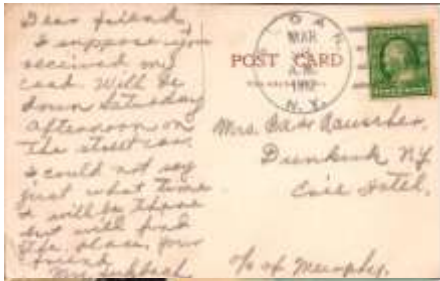 Dear friend,
I suppose you
received my
card. Will be
down Saturday
afternoon on
the street car.
I could not say
just what time
I will be there
but will find
the place, your
friend
Mrs.
MAR
A.M.
1912
N.Y.
POST CARD
Mrs.
Dunkirk N.Y.
Erie Hotel,
c/o of Murphy.